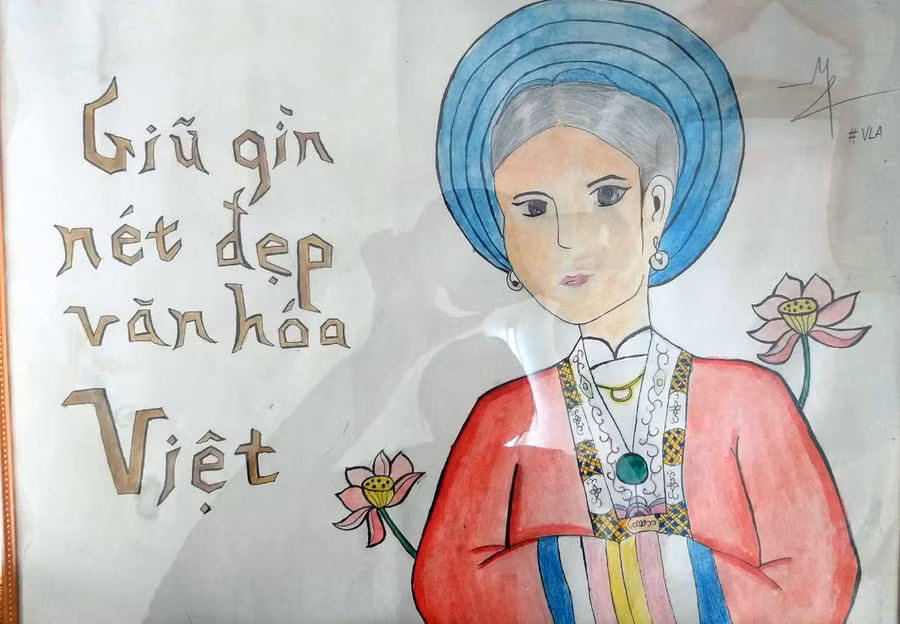 Giữ gìn
nét đẹp
văn hóa
Việt
#VLA